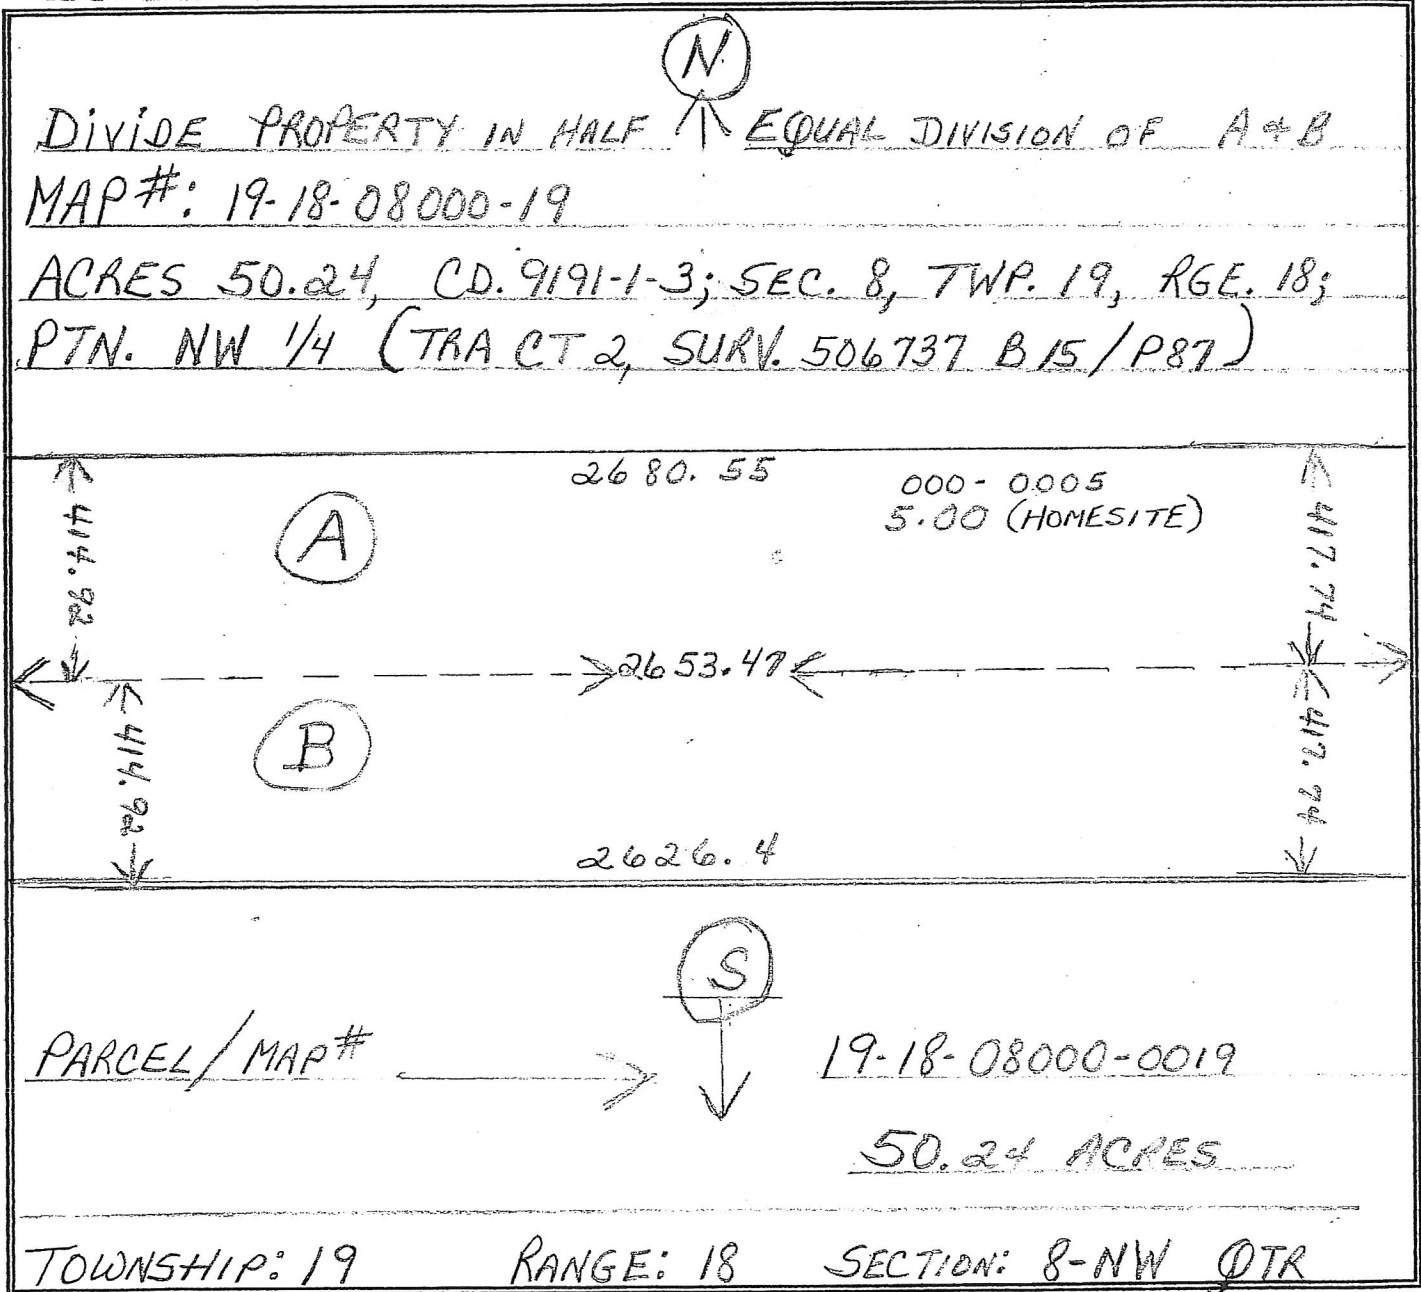 N
DIVIDE PROPERTY IN HALF EQUAL DIVISION OF A & B
MAP#: 19-18-08000-19
ACRES 50.24, CD. 9191-1-3; SEC. 8, TWP. 19, RGE. 18;
PTN. NW 1/4 (TRACT 2, SURV. 506737 B15/P87)
2680.55
000-0005
5.00 (HOMESITE)
A
414.92
417.74
2653.47
B
414.92
417.74
2626.4
S
PARCEL/MAP# 19-18-08000-0019
50.24 ACRES
TOWNSHIP: 19 RANGE: 18 SECTION: 8-NW QTR